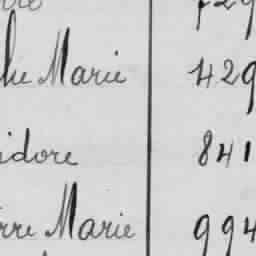 he Marie 429
idore 841
rre Marie 994